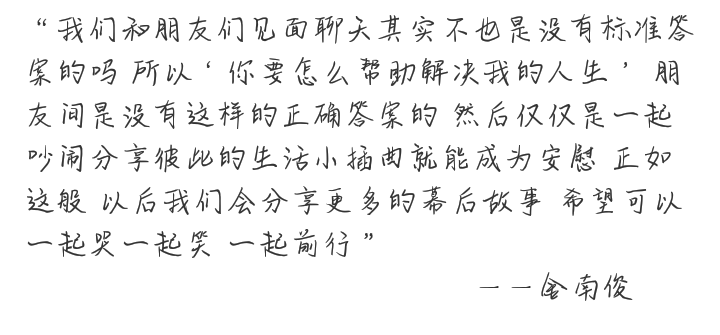 “我们和朋友们见面聊天其实不也是没有标准答
案的吗 所以‘你要怎么帮助解决我的人生’ 朋
友间是没有这样的正确答案的 然后仅仅是一起
吵闹分享彼此的生活小插曲就能成为安慰 正如
这般 以后我们会分享更多的幕后故事 希望可以
一起哭一起笑 一起前行”
——金南俊